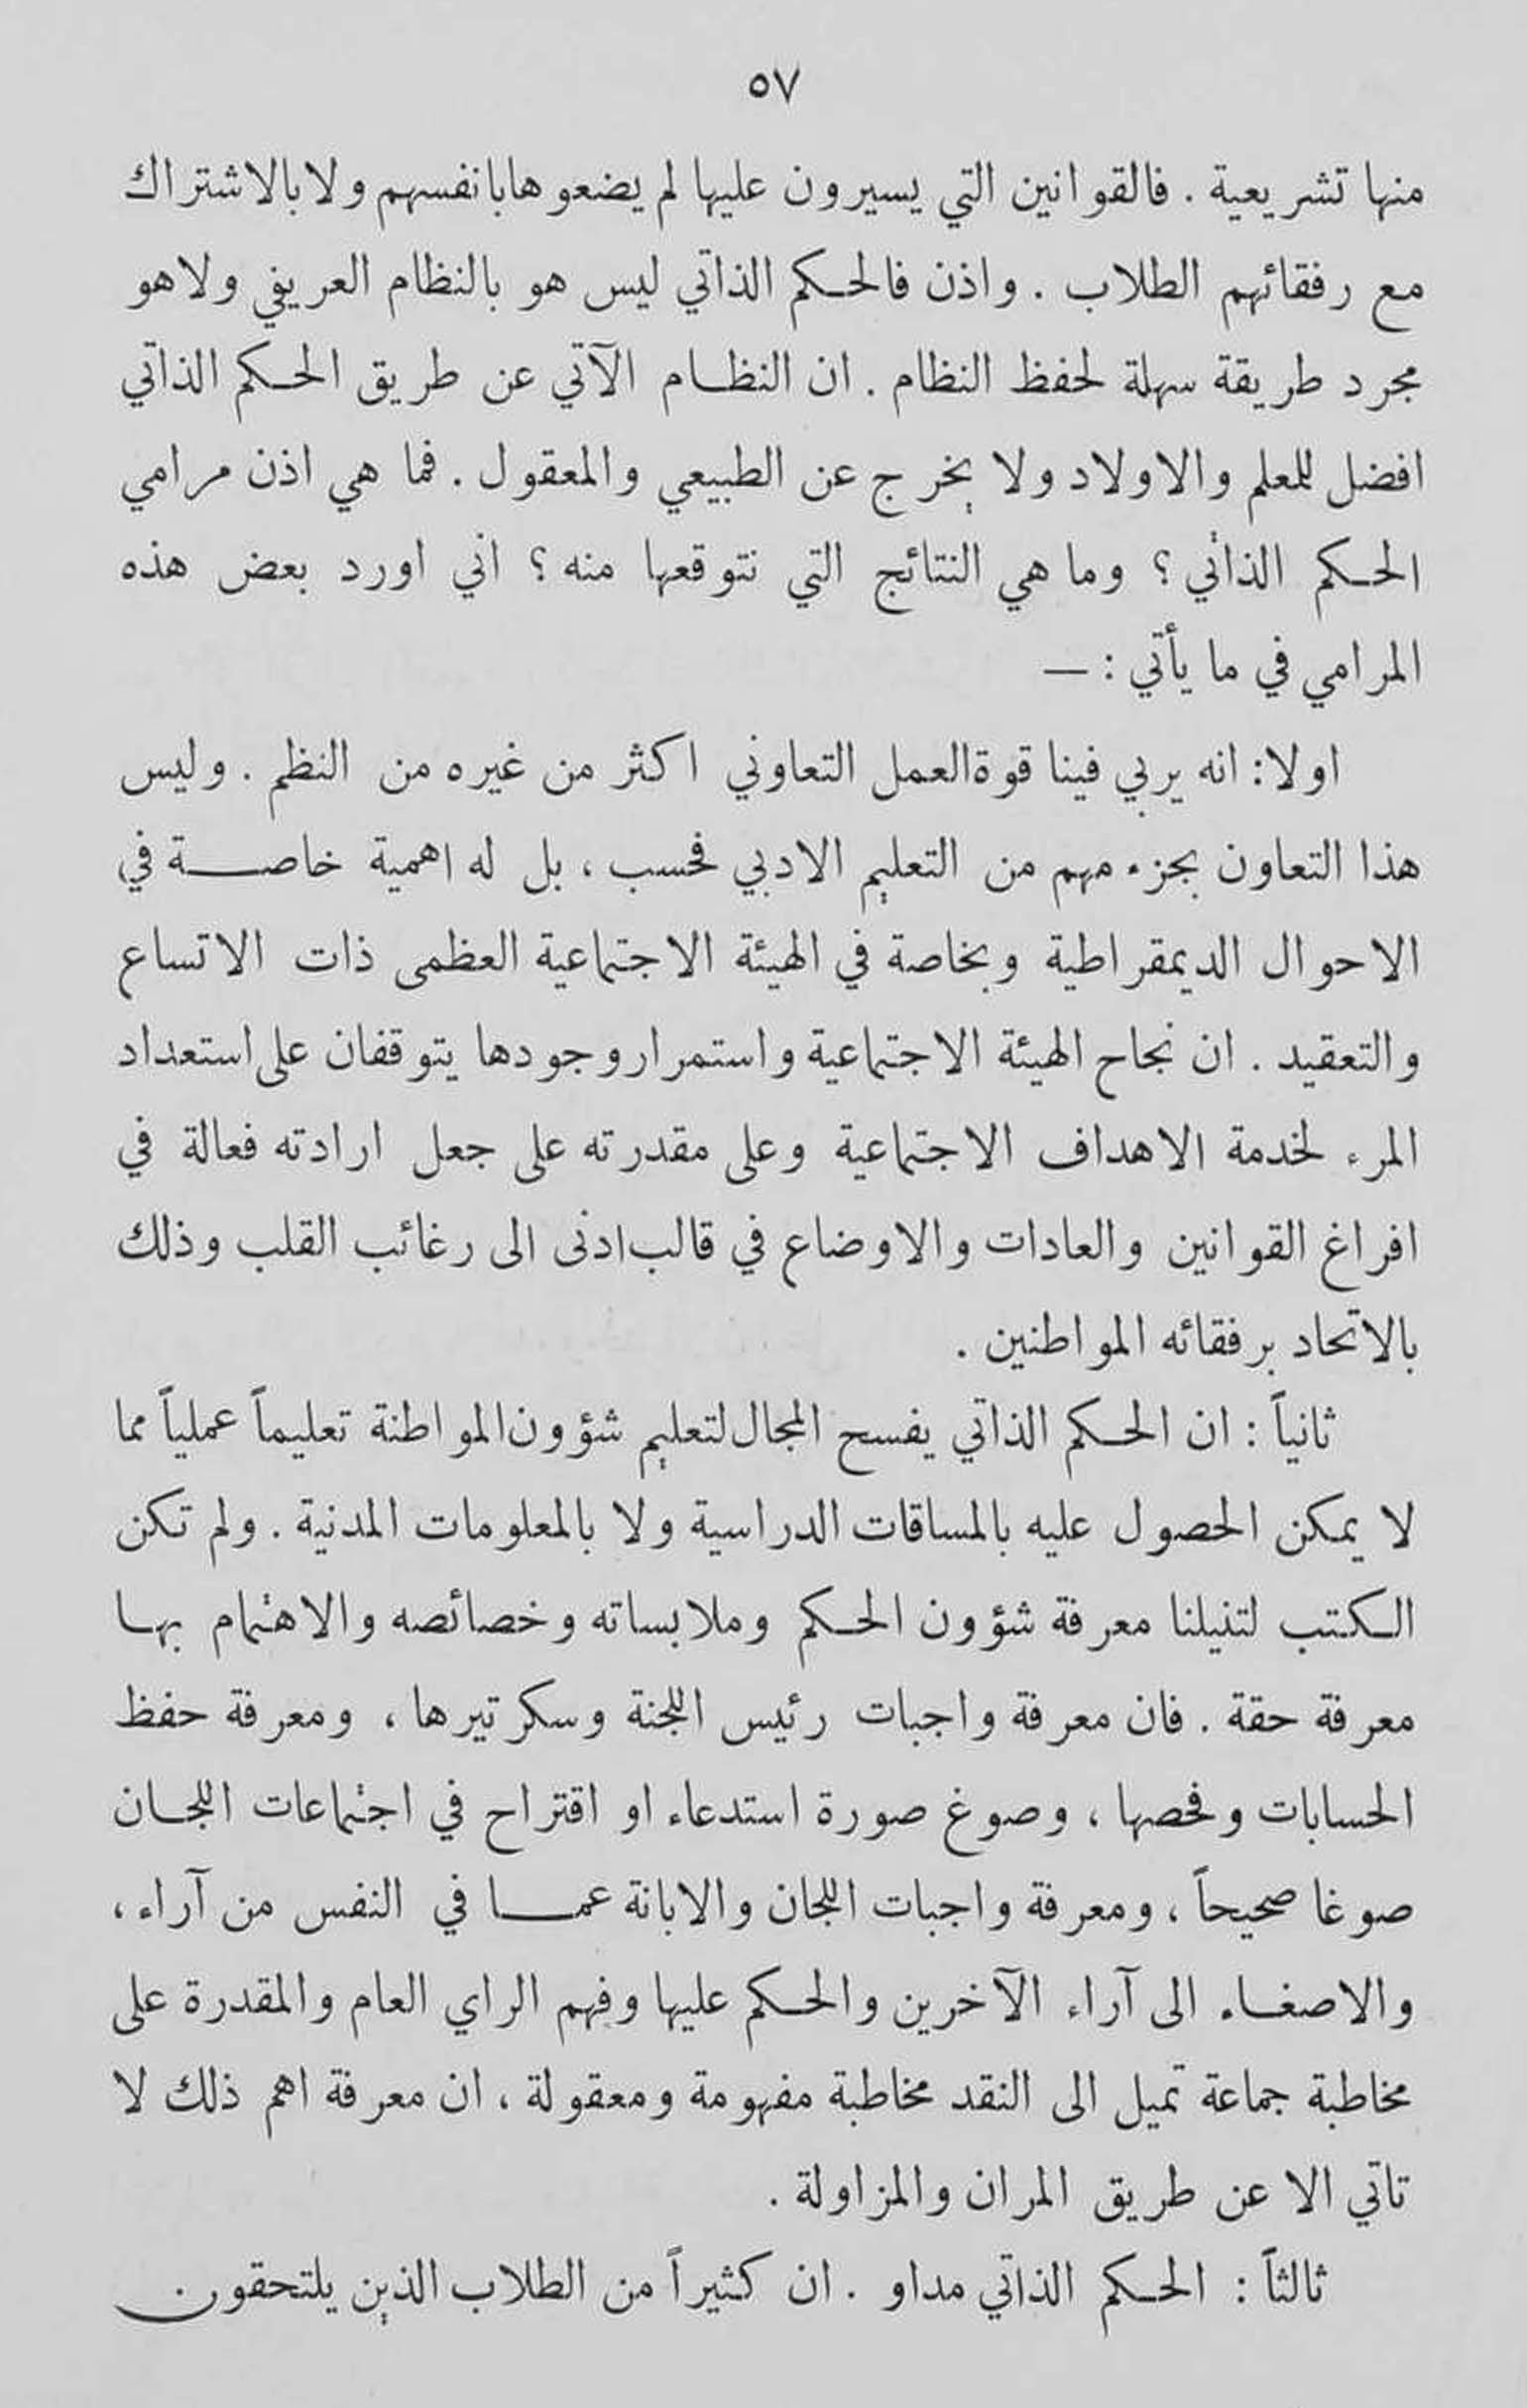 ٥٧
منها تشريعية . فالقوانين التي يسيرون عليها لم يضعوها بانفسهم ولا بالاشتراك
مع رفقائهم الطلاب . واذن فالحكم الذاتي ليس هو بالنظام العريفي ولا هو
مجرد طريقة سهلة لحفظ النظام . ان النظام الآتي عن طريق الحكم الذاتي
افضل للمعلم والاولاد ولا يخرج عن الطبيعي والمعقول . فما هي اذن مرامي
الحكم الذاتي ؟ وما هي النتائج التي نتوقعها منه ؟ اني اورد بعض هذه
المرامي في ما يأتي : —
اولا : انه يربي فينا قوة العمل التعاوني اكثر من غيره من النظم . وليس
هذا التعاون بجزء مهم من التعليم الادبي فحسب ، بل له اهمية خاصة في
الاحوال الديمقراطية وبخاصة في الهيئة الاجتماعية العظمى ذات الاتساع
والتعقيد . ان نجاح الهيئة الاجتماعية واستمرار وجودها يتوقفان على استعداد
المرء لخدمة الاهداف الاجتماعية وعلى مقدرته على جعل ارادته فعالة في
افراغ القوانين والعادات والاوضاع في قالب ادنى الى رغائب القلب وذلك
بالاتحاد برفقائه المواطنين .
ثانياً : ان الحكم الذاتي يفسح المجال لتعليم شؤون المواطنة تعليماً عملياً مما
لا يمكن الحصول عليه بالمساقات الدراسية ولا بالمعلومات المدنية . ولم تكن
الكتب لتنيلنا معرفة شؤون الحكم وملابساته وخصائصه والاهتمام بها
معرفة حقة . فان معرفة واجبات رئيس اللجنة وسكرتيرها ، ومعرفة حفظ
الحسابات وفحصها ، وصوغ صورة استدعاء او اقتراح في اجتماعات اللجان
صوغا صحيحاً ، ومعرفة واجبات اللجان والابانة عما في النفس من آراء ،
والاصغاء الى آراء الآخرين والحكم عليها وفهم الراي العام والمقدرة على
مخاطبة جماعة تميل الى النقد مخاطبة مفهومة ومعقولة ، ان معرفة اهم ذلك لا
تاتي الا عن طريق المران والمزاولة .
ثالثاً : الحكم الذاتي مداو . ان كثيراً من الطلاب الذين يلتحقون